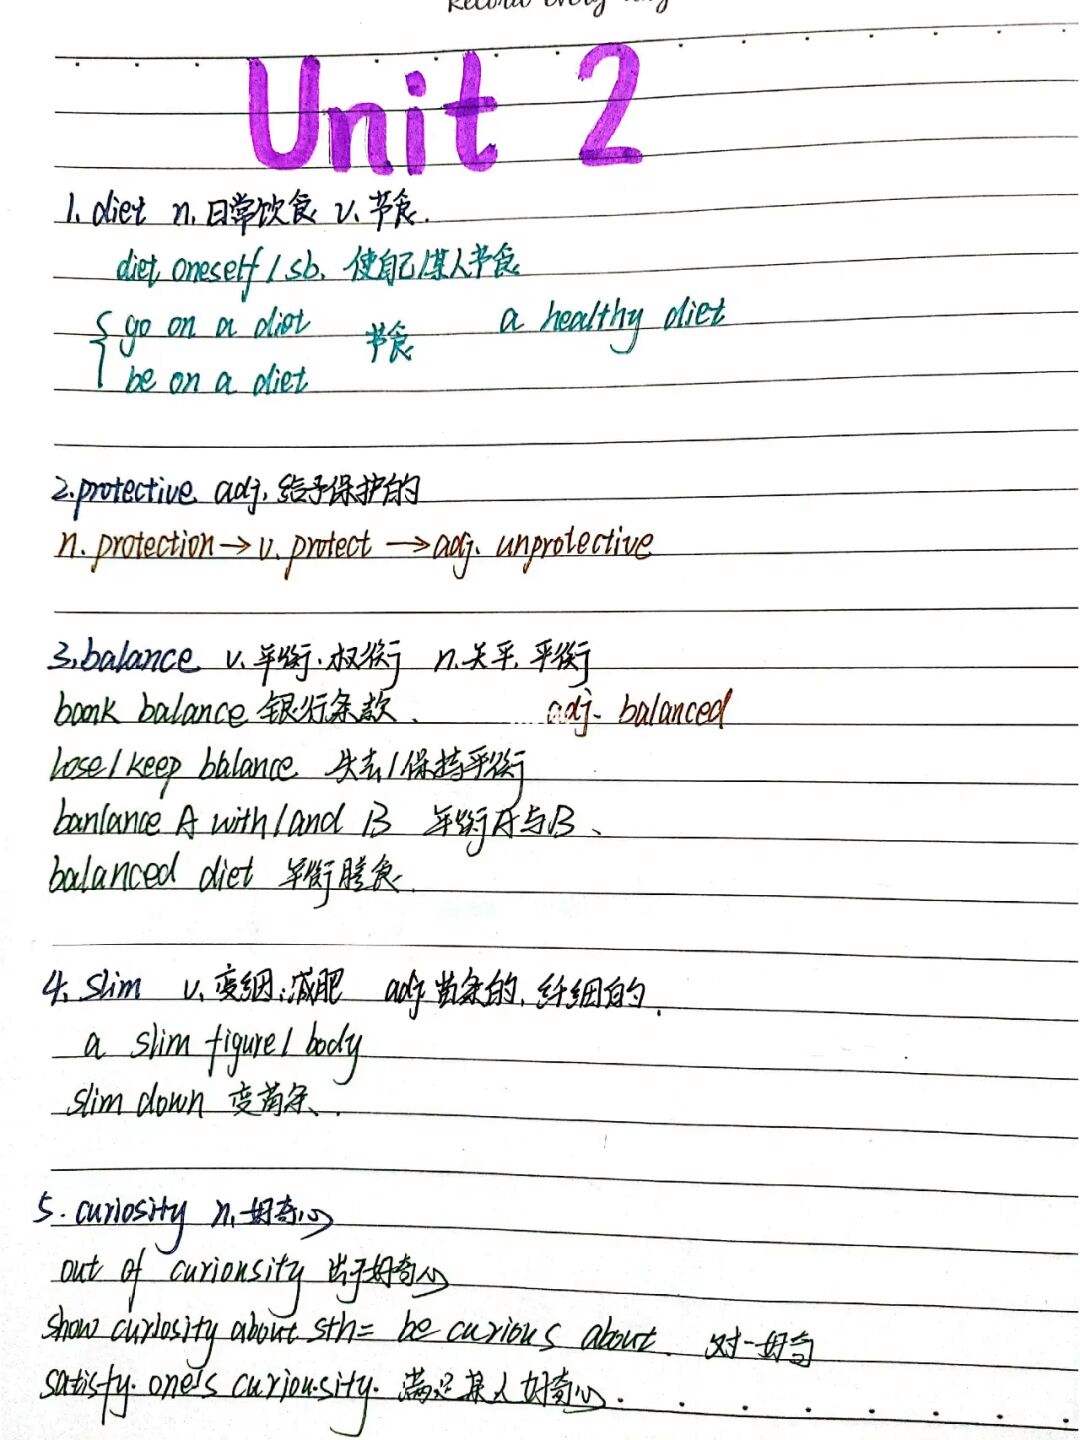 Record every day
Unit 2
1. diet n. 日常饮食 v. 节食.
diet oneself / sb. 使自己/某人节食
go on a diet 节食 a healthy diet
be on a diet
2. protective adj. 给予保护的
n. protection → v. protect → adj. unprotective
3. balance v. 平衡.权衡 n. 天平. 平衡
bank balance 银行余款. adj. balanced
lose / keep balance 失去/保持平衡
banlance A with/and B 平衡A与B、
balanced diet 平衡膳食.
4. slim v. 变细;减肥 adj 苗条的. 纤细的.
a slim figure / body
slim down 变苗条.
5. curiosity n. 好奇心
out of curionsity 出于好奇心
show curiosity about sth = be curious about. 对一好奇
satisfy. one's curiousity. 满足某人好奇心.